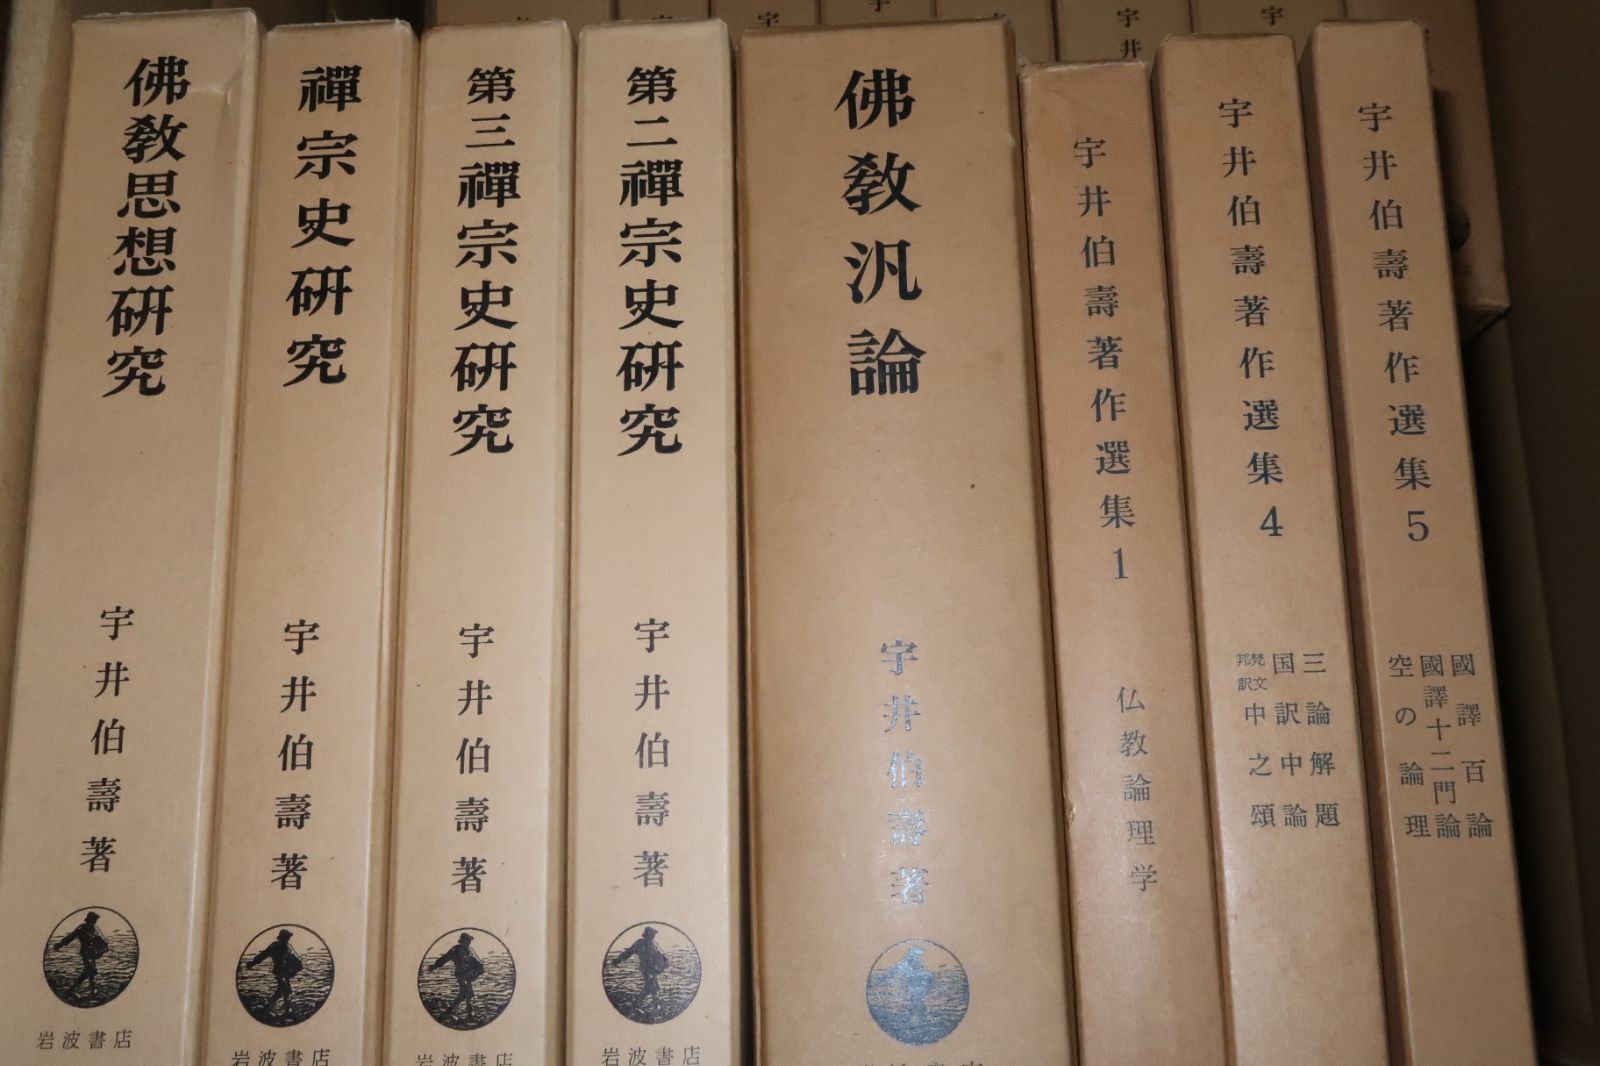 佛教思想研究
宇井伯壽著
岩波書店
禪宗史研究
宇井伯壽著
岩波書店
第三禪宗史研究
宇井伯壽著
岩波書店
第二禪宗史研究
宇井伯壽著
岩波書店
佛教汎論
宇井伯壽著
宇井伯壽著作選集1
仏教論理学
宇井伯壽著作選集4
三論解題
国訳中論
梵文邦訳中之頌
宇井伯壽著作選集5
國譯百論
國譯十二門論
空の論理
宇
宇
宇井
宇